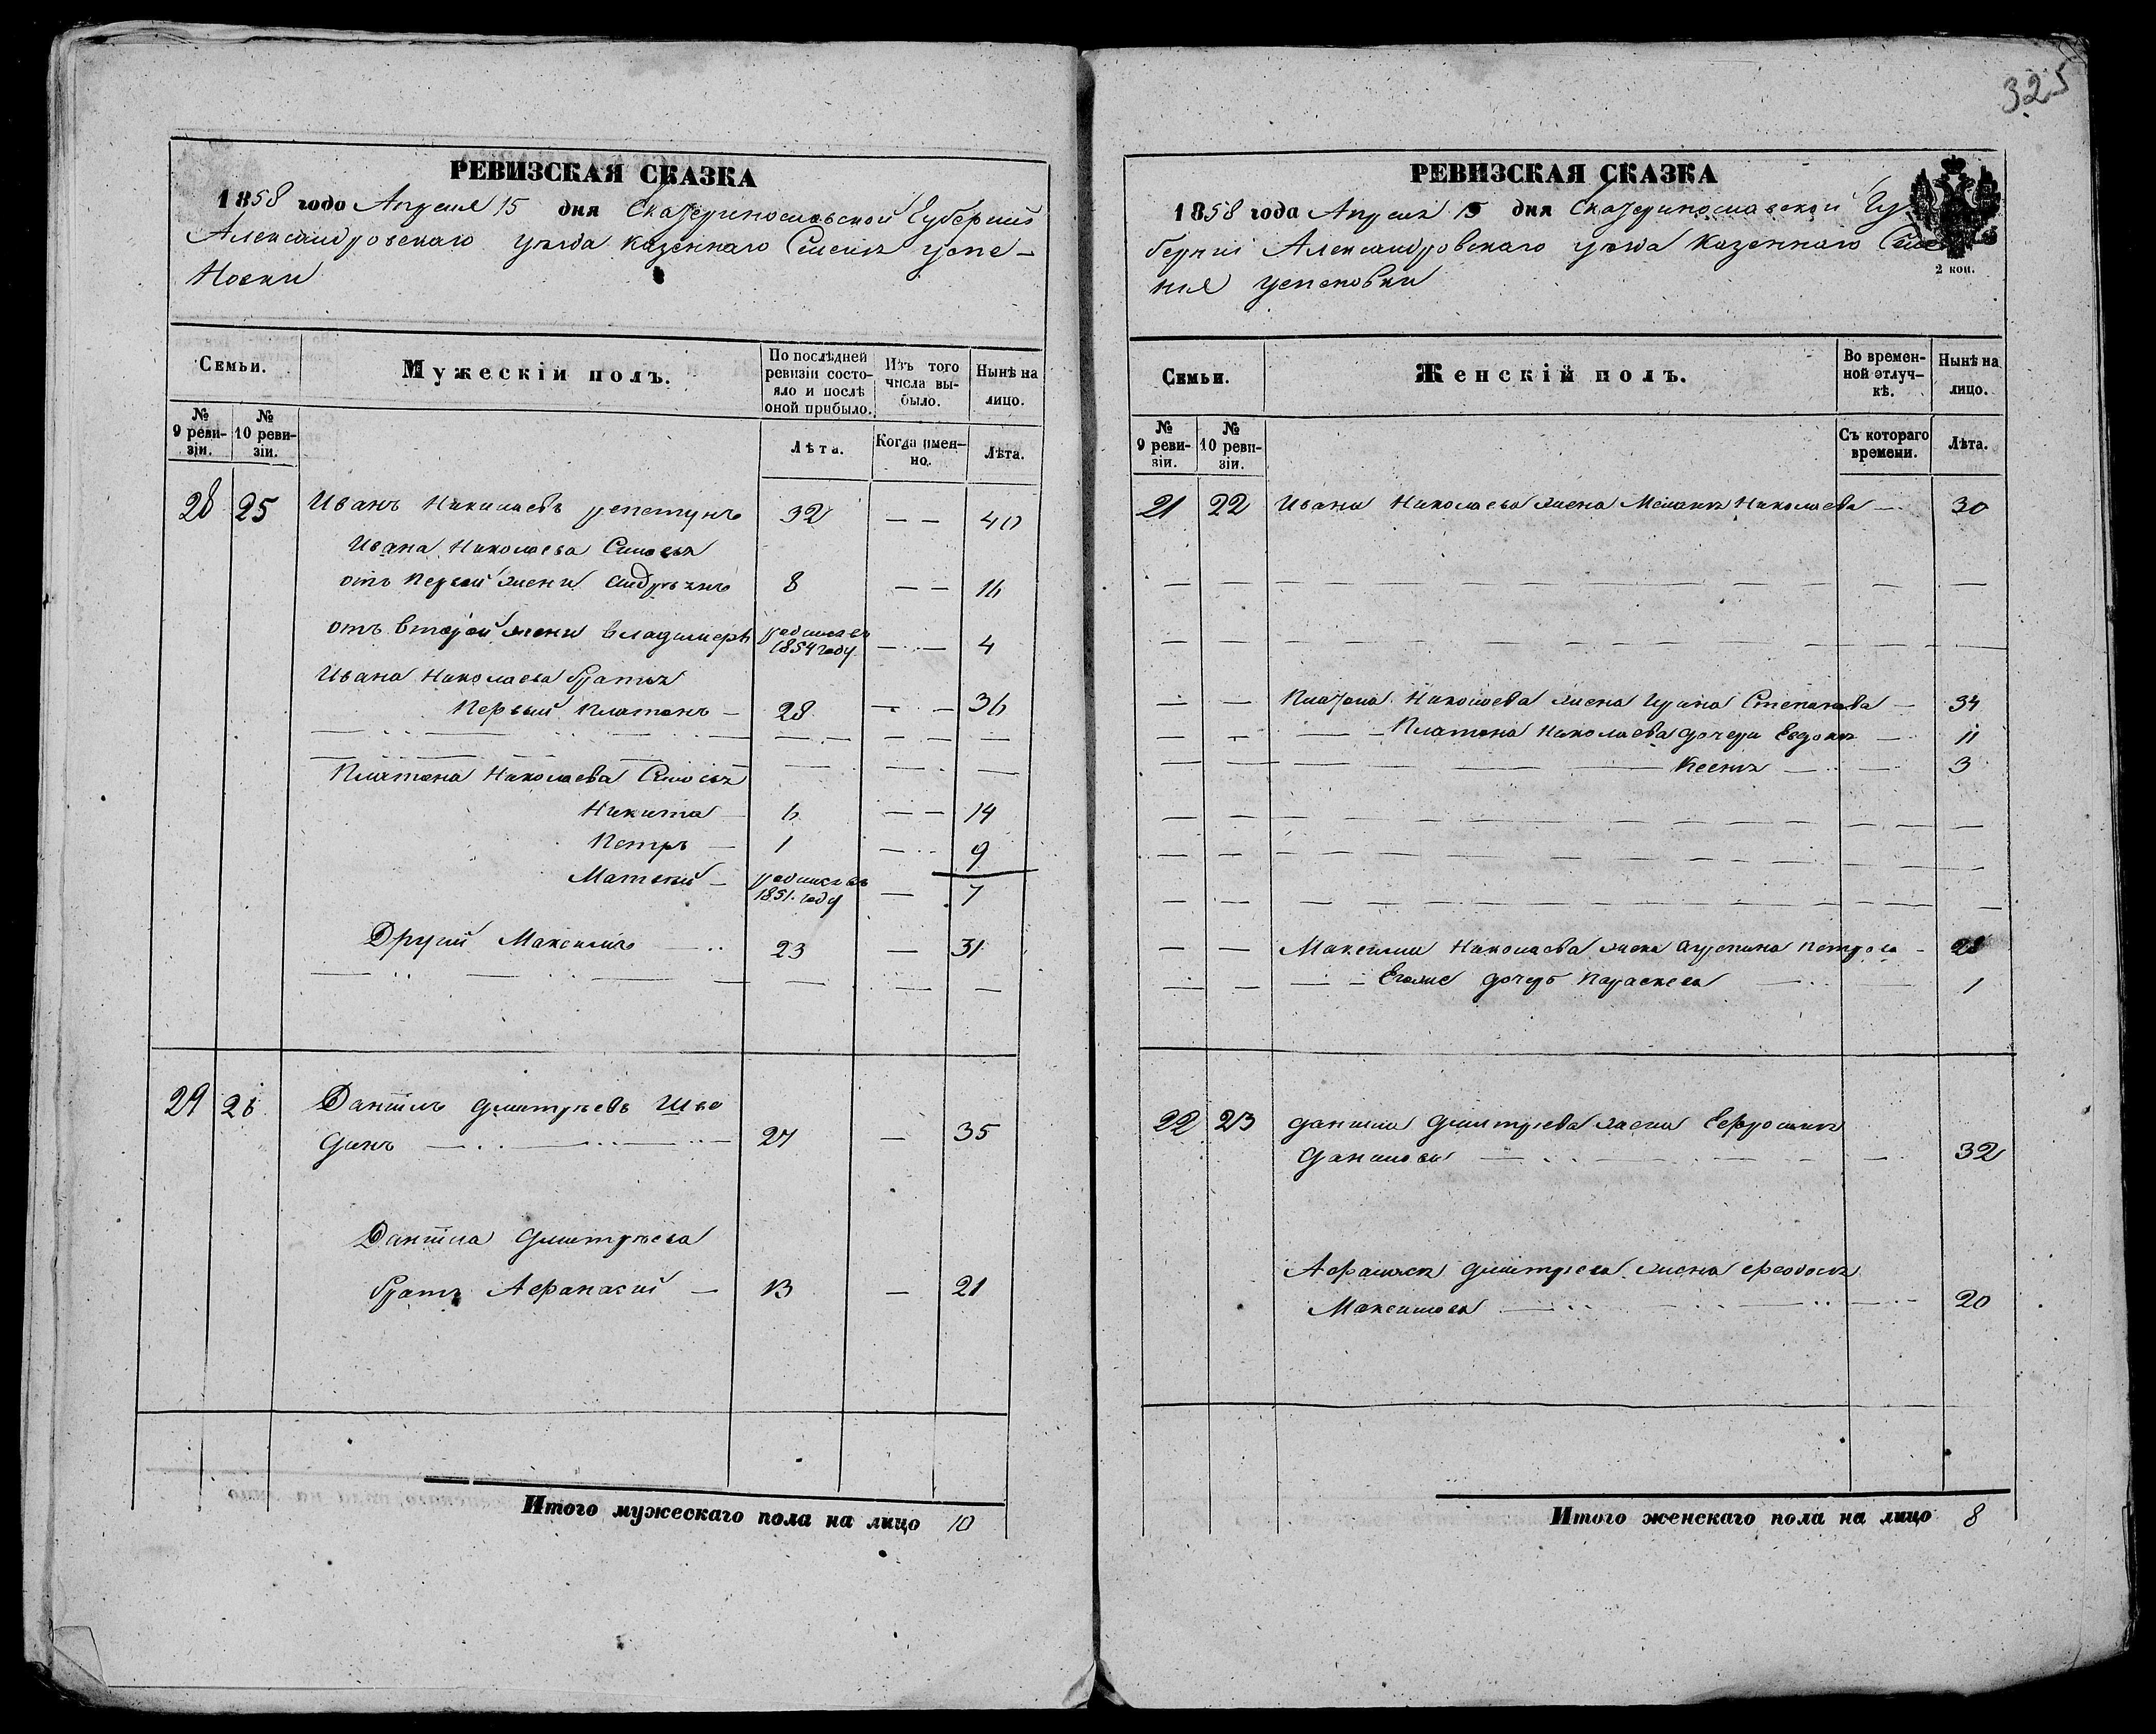 325
РЕВИЗСКАЯ СКАЗКА
1858 года Апреля 15 дня Екатеринославской Губернии
Александровскаго уезда казеннаго Селения Успе-
новки
Семьи.
Мужескій полъ.
По послѣдней ревизіи состояло и послѣ оной прибыло.
Изъ того числа выбыло.
Нынѣ на лицо.
№ 9 ревизіи.
№ 10 ревизіи.
Лѣта.
Когда именно.
Лѣта.
28 25 Иванъ Николаевъ репетунъ 32 — — 40
Ивана Николаева Сыновья
отъ первой жены Андреянъ 8 — — 16
отъ второй жены Владимеръ родился въ 1854 году — — 4
Ивана Николаева братья
Первый Платонъ — 28 — — 36
Платона Николаева Сыновья
Никита — 6 — — 14
Петръ — 1 — 9
Матвей — родился въ 1851 году — 7
Другий Максимъ — 23 — 31
29 26 Даніилъ Дмитріевъ Шве
динъ — 27 — 35
Даніила Дмитріева
братъ Афанасій — 13 — 21
Итого мужескаго пола на лицо 10
РЕВИЗСКАЯ СКАЗКА
1858 года Апреля 15 дня Екатеринославской Гу-
берніи Александровскаго уезда казеннаго Селе
ния Успеновки
2 коп.
Семьи.
Женскій полъ.
Во временной отлучкѣ.
Нынѣ на лицо.
№ 9 ревизіи.
№ 10 ревизіи.
Съ котораго времени.
Лѣта.
21 22 Ивана Николаева жена Меланья Николаева — 30
Платона Николаева жена Ирина Степанова — 34
Платона Николаева дочери Евдокия — 11
Ксения — 3
Максима Николаева жена Агрепина Петрова — 28
Егоже дочерь Параскева — 1
22 23 Данила Дмитриева жена Ефросинья
Данилова — 32
Афанасия Дмитриева жена Феодосия
Максимова — 20
Итого женскаго пола на лицо 8